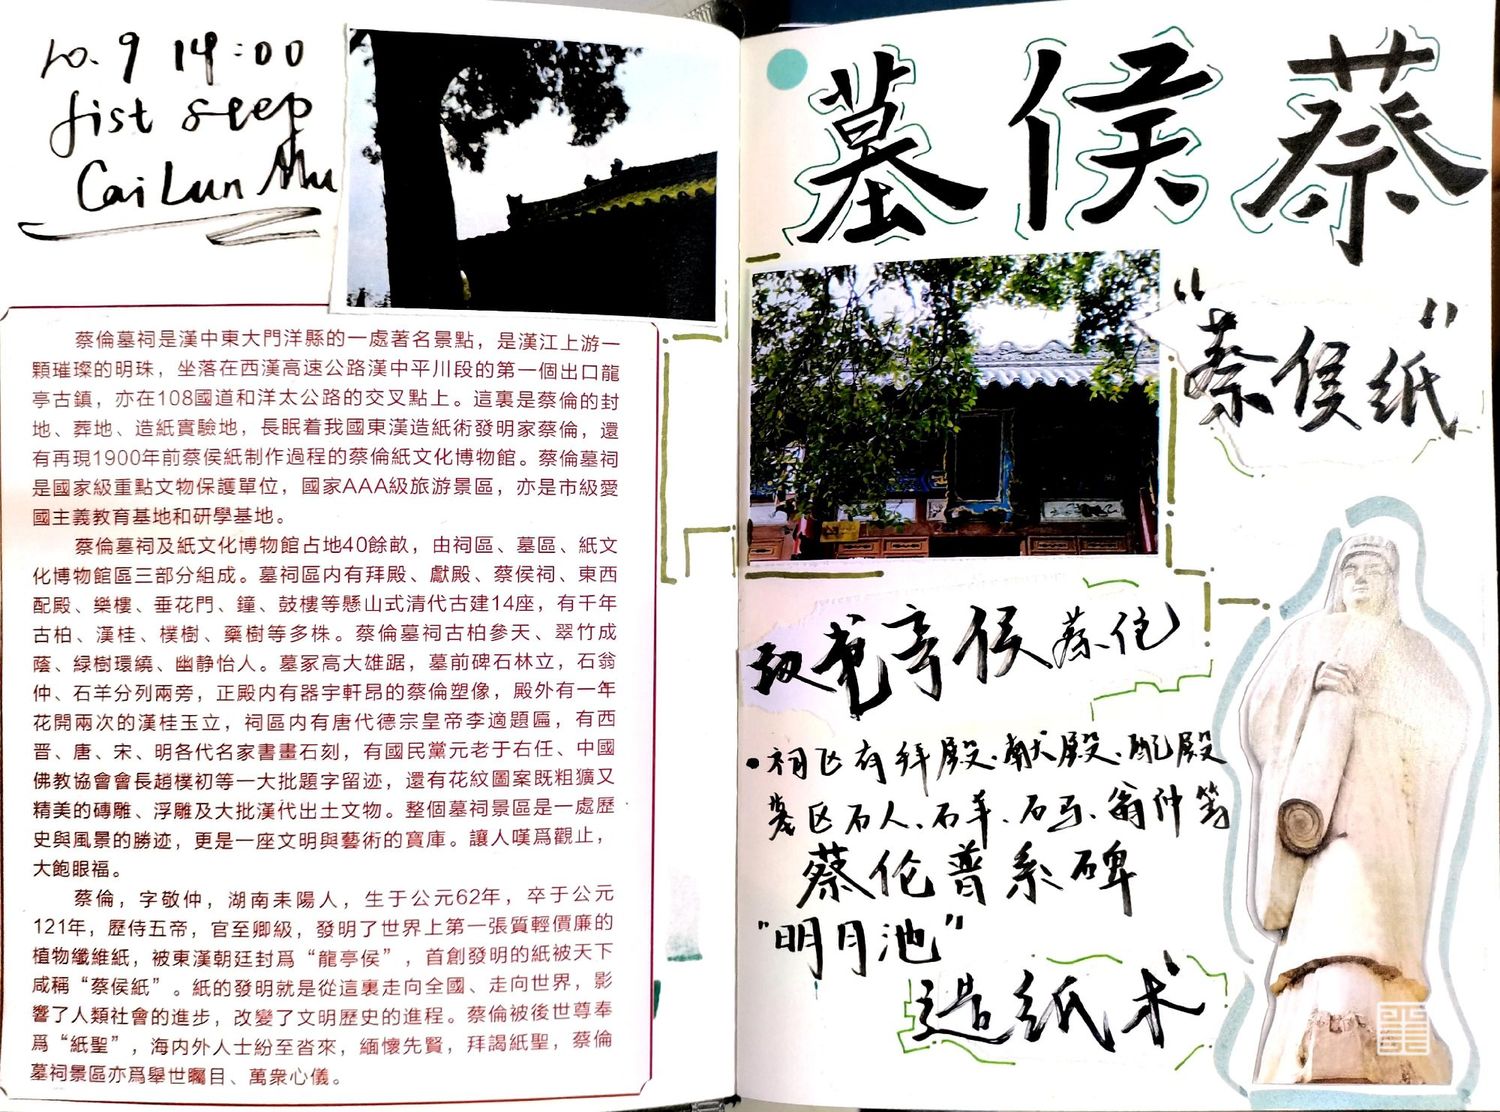 10.9 14:00
fist seep
Cai Lun Mu
蔡倫墓祠是漢中東大門洋縣的一處著名景點，是漢江上游一
顆璀璨的明珠，坐落在西漢高速公路漢中平川段的第一個出口龍
亭古鎮，亦在108國道和洋太公路的交叉點上。這裏是蔡倫的封
地、葬地、造紙實驗地，長眠着我國東漢造紙術發明家蔡倫，還
有再現1900年前蔡侯紙制作過程的蔡倫紙文化博物館。蔡倫墓祠
是國家級重點文物保護單位，國家AAA級旅游景區，亦是市級愛
國主義教育基地和研學基地。
蔡倫墓祠及紙文化博物館占地40餘畝，由祠區、墓區、紙文
化博物館區三部分組成。墓祠區内有拜殿、獻殿、蔡侯祠、東西
配殿、樂樓、垂花門、鐘、鼓樓等懸山式清代古建14座，有千年
古柏、漢桂、樸樹、藥樹等多株。蔡倫墓祠古柏參天、翠竹成
蔭、緑樹環繞、幽静怡人。墓冢高大雄踞，墓前碑石林立，石翁
仲、石羊分列兩旁，正殿内有器宇軒昂的蔡倫塑像，殿外有一年
花開兩次的漢桂玉立，祠區内有唐代德宗皇帝李適題匾，有西
晋、唐、宋、明各代名家書畫石刻，有國民黨元老于右任、中國
佛教協會會長趙樸初等一大批題字留迹，還有花紋圖案既粗獷又
精美的磚雕、浮雕及大批漢代出土文物。整個墓祠景區是一處歷
史與風景的勝迹，更是一座文明與藝術的寶庫。讓人嘆爲觀止，
大飽眼福。
蔡倫，字敬仲，湖南耒陽人，生于公元62年，卒于公元
121年，歷侍五帝，官至卿級，發明了世界上第一張質輕價廉的
植物纖維紙，被東漢朝廷封爲“龍亭侯”，首創發明的紙被天下
咸稱“蔡侯紙”。紙的發明就是從這裏走向全國、走向世界，影
響了人類社會的進步，改變了文明歷史的進程。蔡倫被後世尊奉
爲“紙聖”，海内外人士紛至沓來，緬懷先賢，拜謁紙聖，蔡倫
墓祠景區亦爲舉世矚目、萬衆心儀。
蔡侯墓
“蔡侯纸”
亭侯蔡伦
·祠区有拜殿、献殿、配殿
墓区石人、石羊、石马、翁仲等
蔡伦普系碑
“明月池”
造纸术